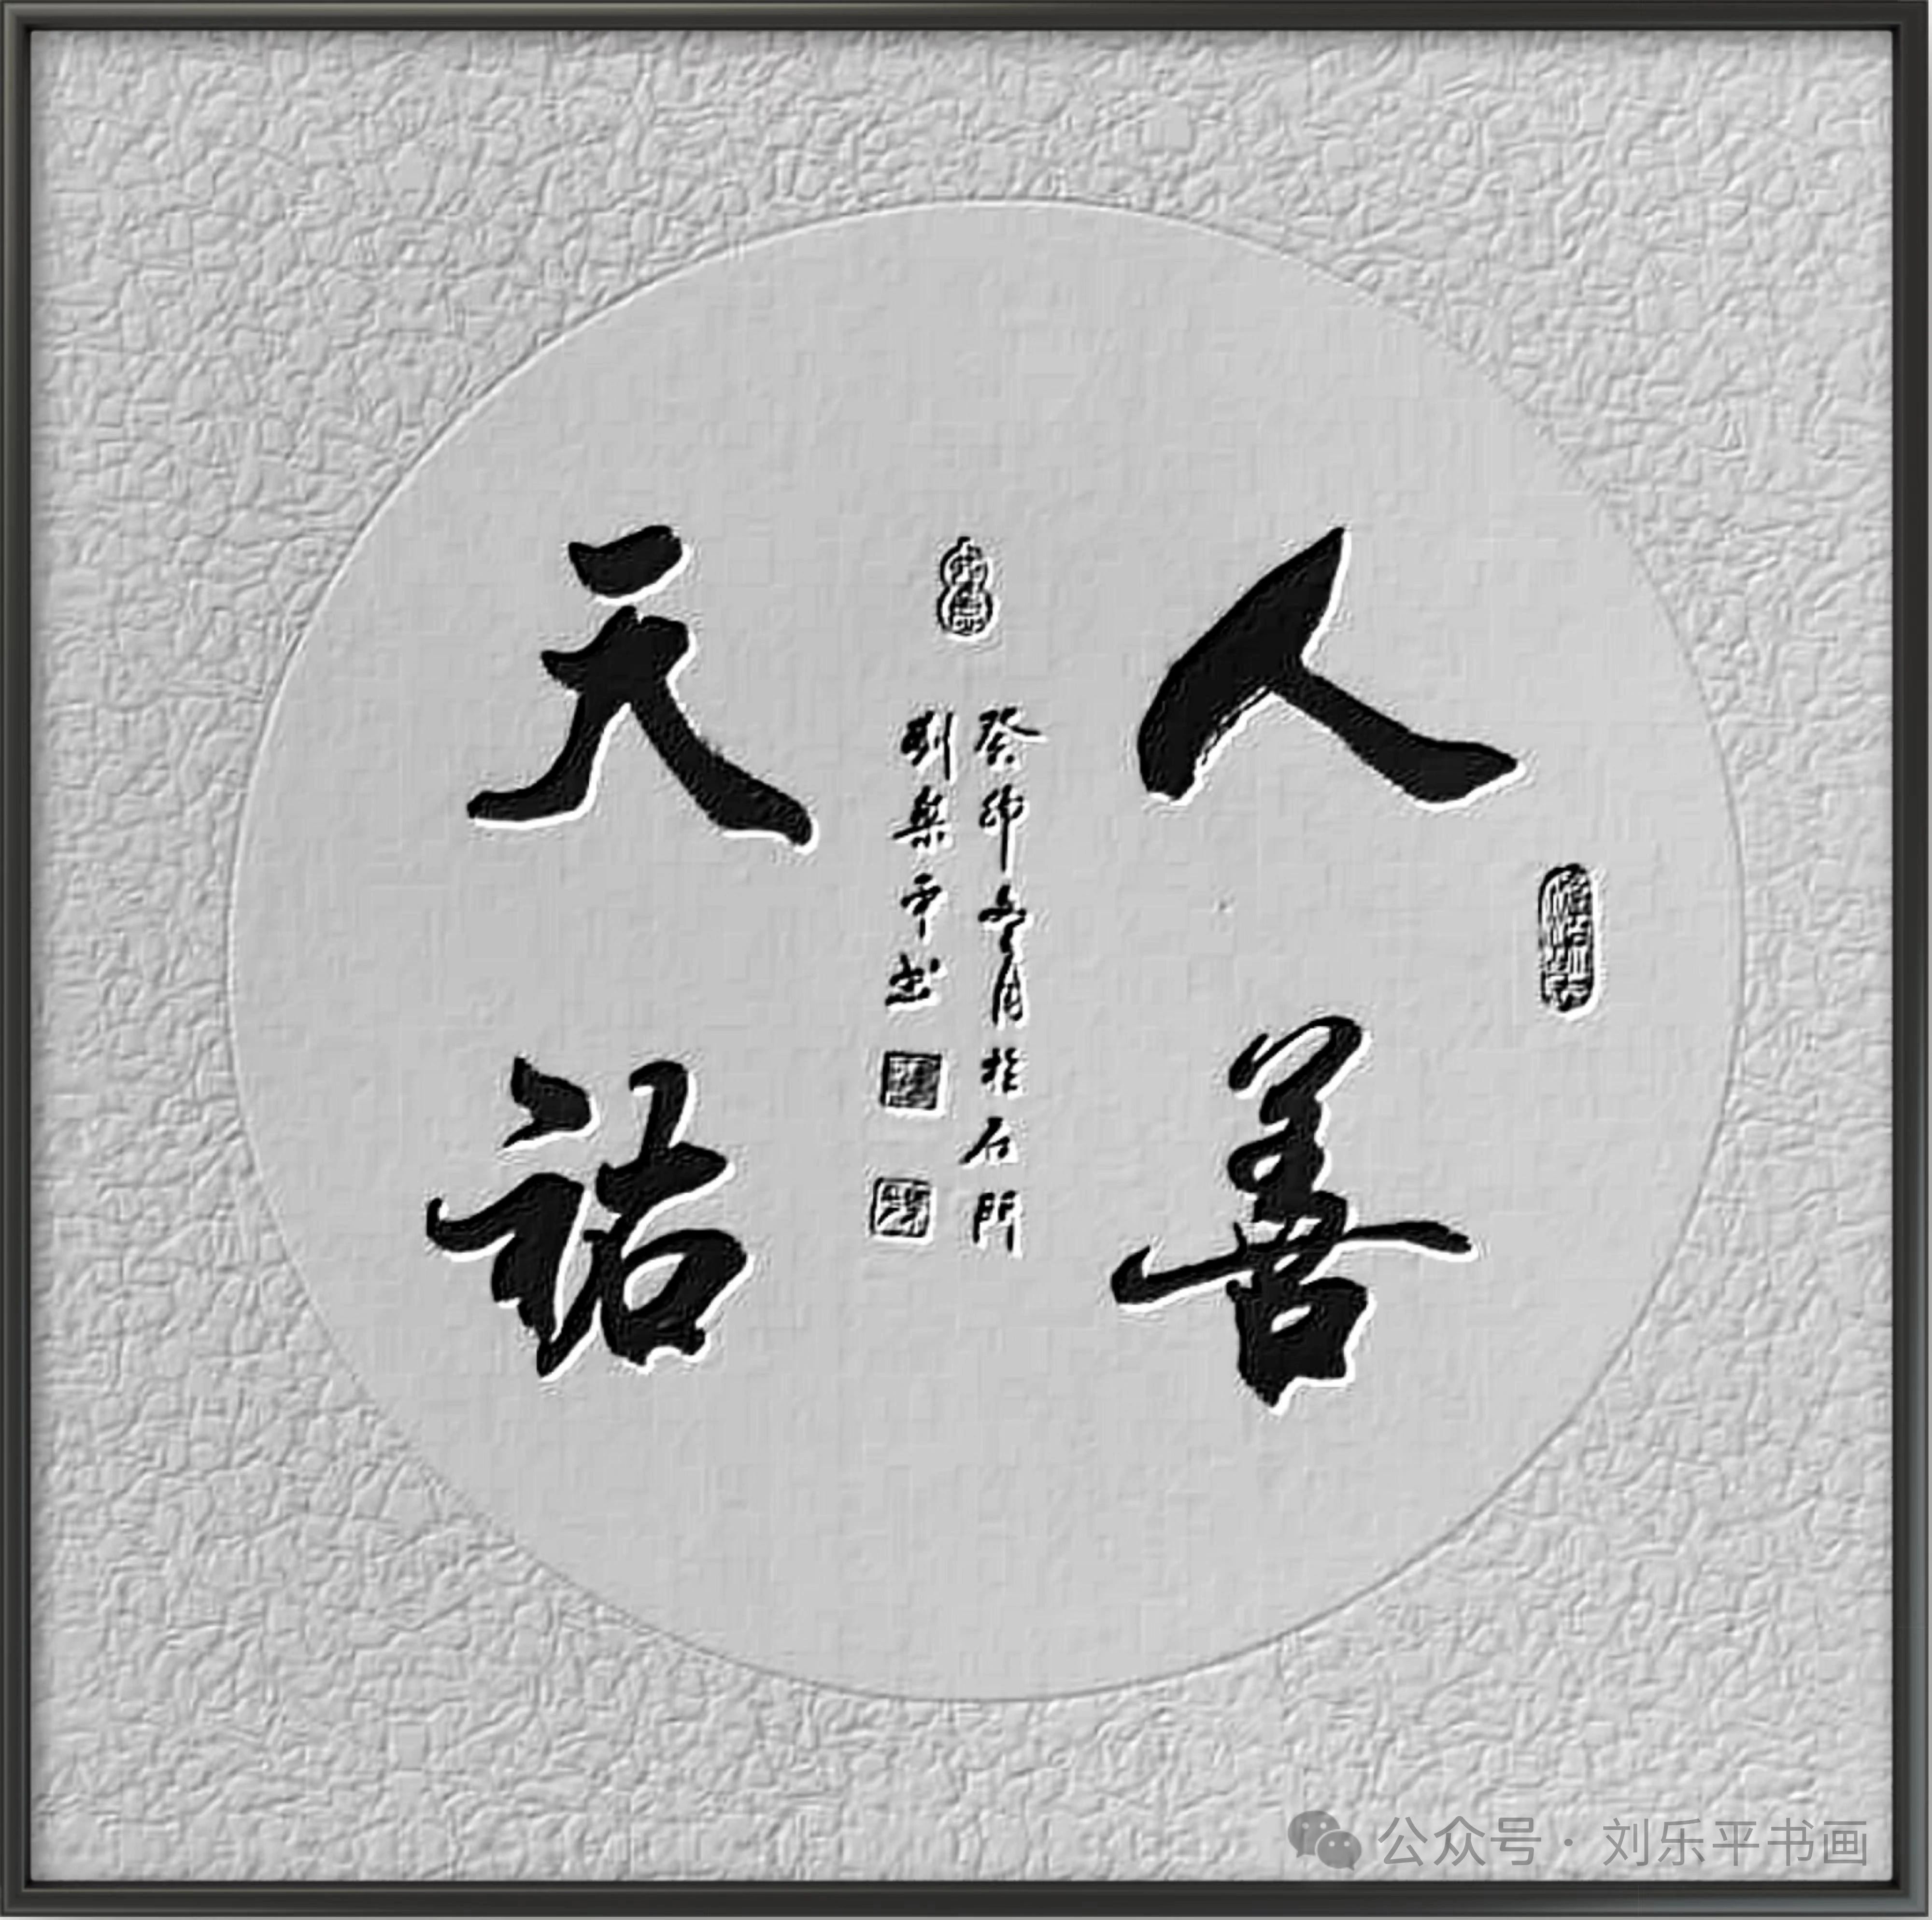 人善
天祐
癸卯冬月於石門
劉樂平書
公众号 · 刘乐平书画